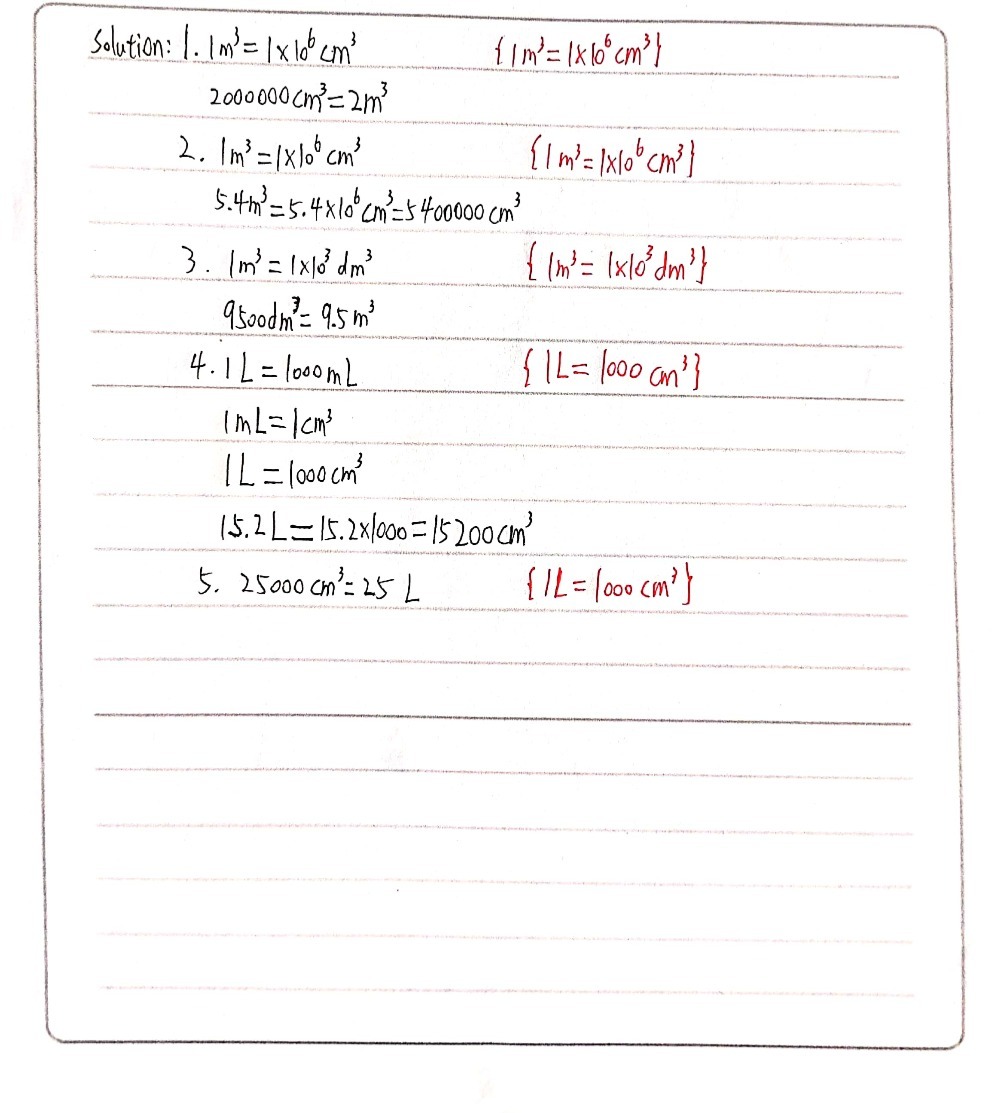 Solution: 1. 1m³ = 1×10⁶ cm³ {1m³ = 1×10⁶ cm³}
2000000 cm³ = 2m³
2. 1m³ = 1×10⁶ cm³ {1m³ = 1×10⁶ cm³}
5.4m³ = 5.4×10⁶ cm³ = 5400000 cm³
3. 1m³ = 1×10³ dm³ {1m³ = 1×10³ dm³}
9500dm³ = 9.5 m³
4. 1L = 1000mL {1L = 1000 cm³}
1mL = 1cm³
1L = 1000 cm³
15.2L = 15.2×1000 = 15200cm³
5. 25000 cm³ = 25 L {1L = 1000 cm³}